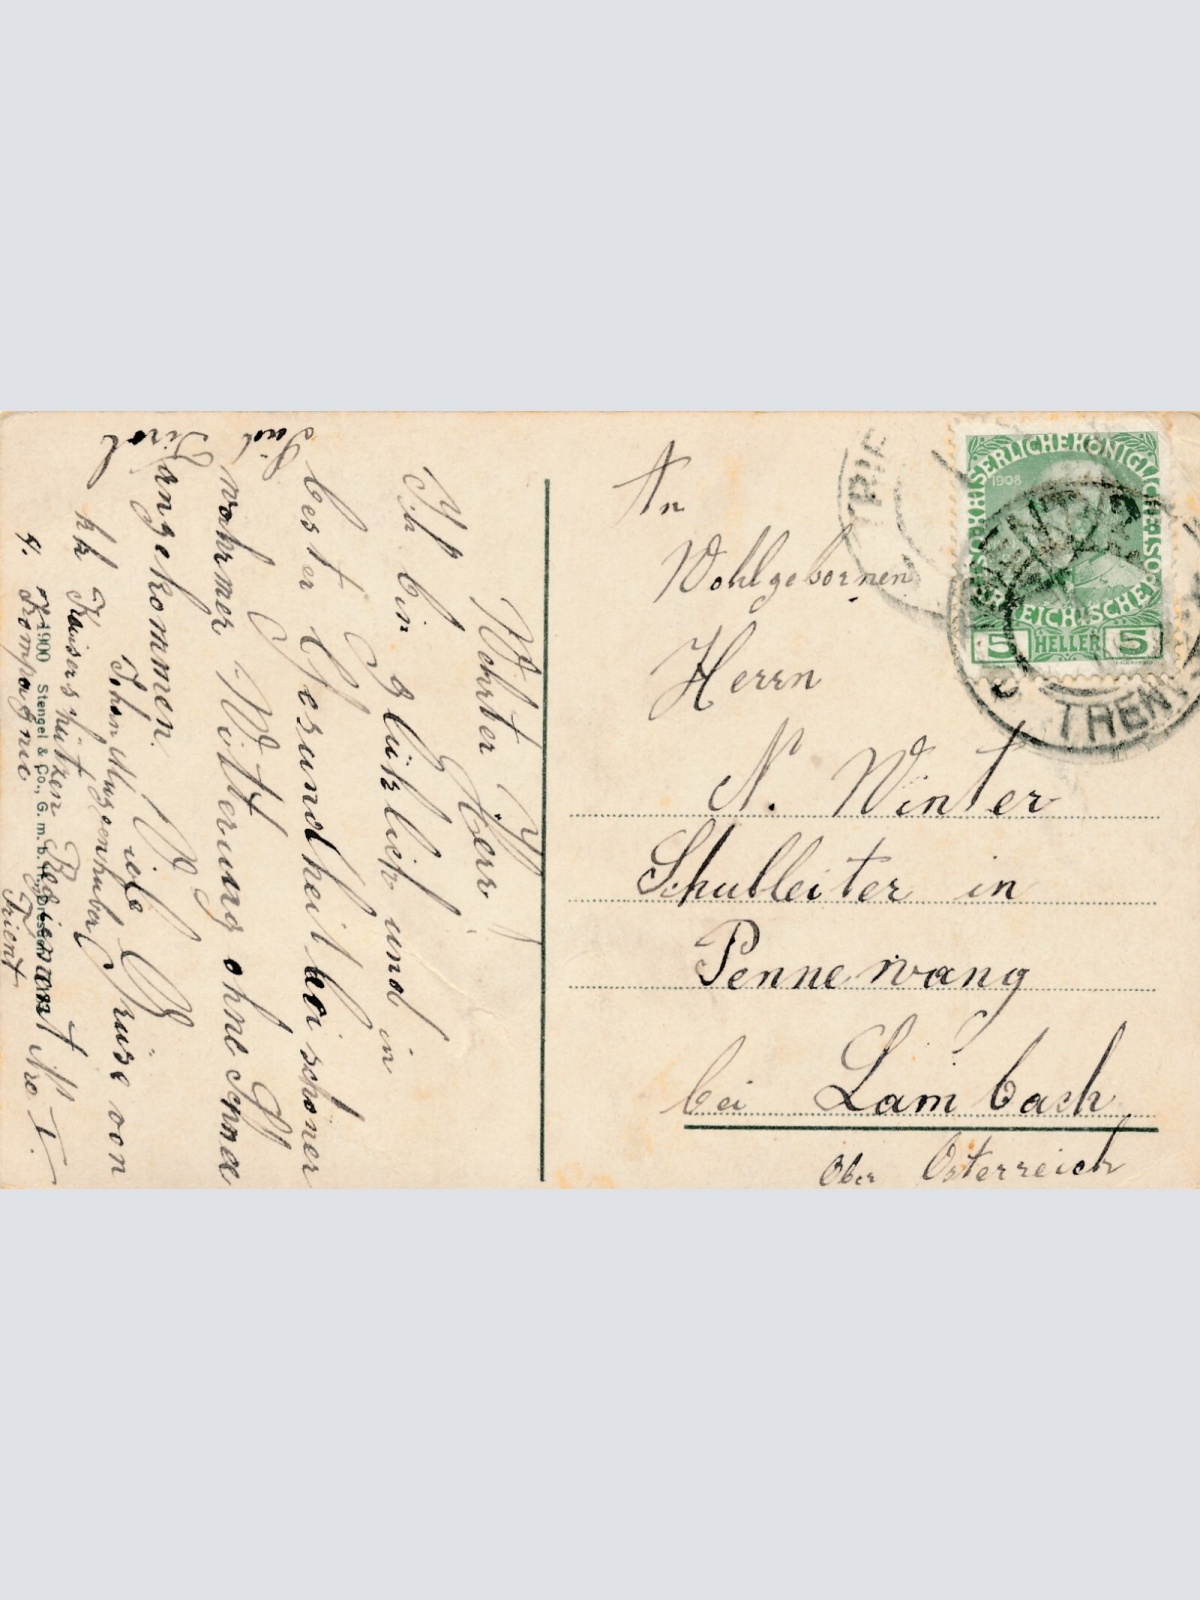 Wehrter Herr!
Ich bin glüklich und in
bester Gesundheit bei schöner
wahrmer Witterung ohne Schnee
angekommen.
Viele Grüse von
Johan
kk Kaisers
Regimant Nro I.
4. Kompagnie Trient
Süd
Tirol
Stengel & Co., G. m. b. H., Dresden
An
Wohlgebornen
Herrn
N. Winter
Schulleiter in
Pennewang
bei Lambach
Ober Österreich
KAISERLICHE KÖNIGLICHE
ÖSTERREICHISCHE POST
1908
5 HELLER 5
TRIE
TRIENT
TRENT